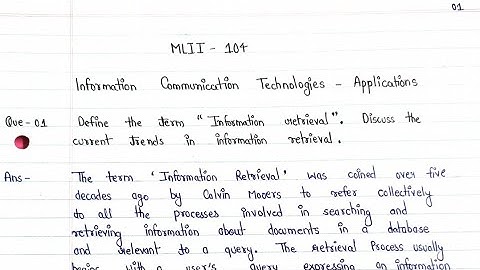 01
MLII - 104
Information Communication Technologies - Applications
Que - 01 Define the term "Information retrieval". Discuss the
current trends in information retrieval.
Ans - The term 'Information Retrieval' was coined over five
decades ago by Calvin Mooers to refer collectively
to all the processes involved in searching and
retrieving information about documents in a database
and relevant to a query. The retrieval Process usually
begins with a user's query expressing an information